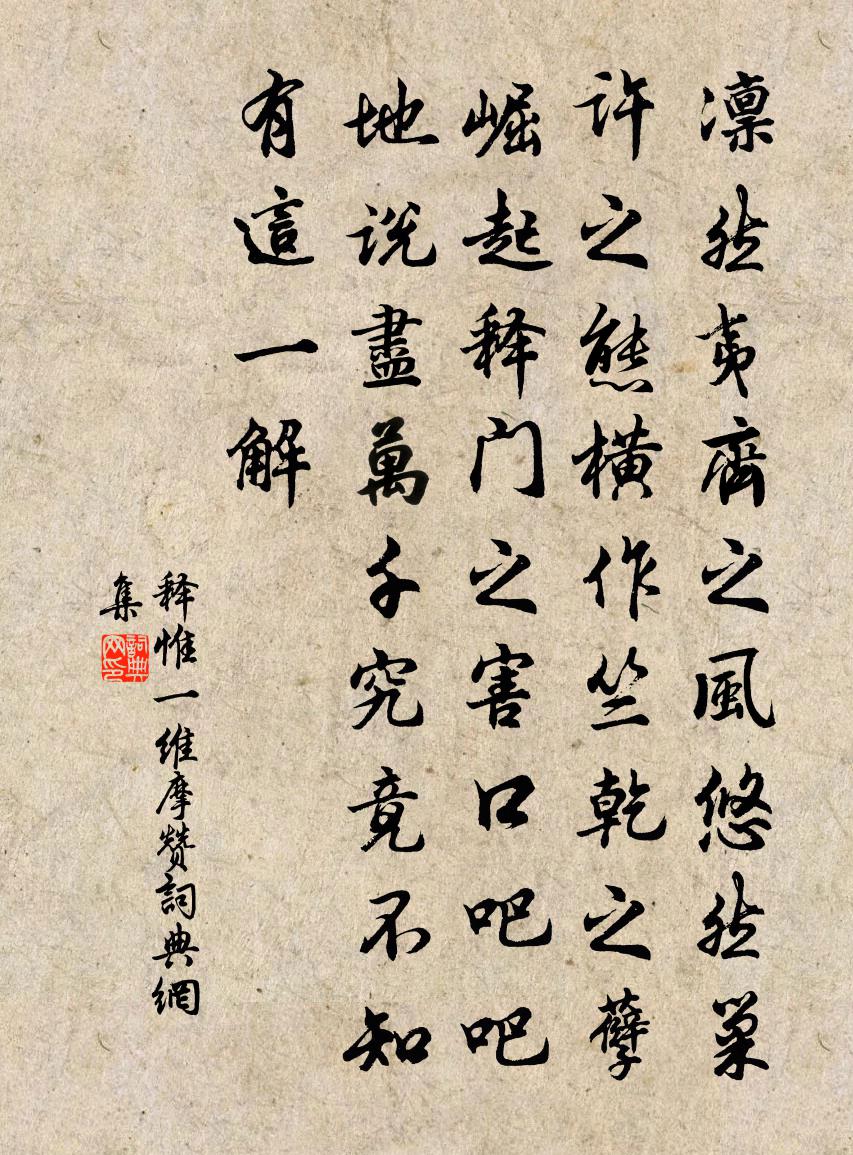 凛然夷齊之風悠然巢
許之態橫作竺乾之孽
崛起释门之害口吧吧
地说盡萬千究竟不知
有這一解
释惟一維摩贊詞典網
集
詞典网印